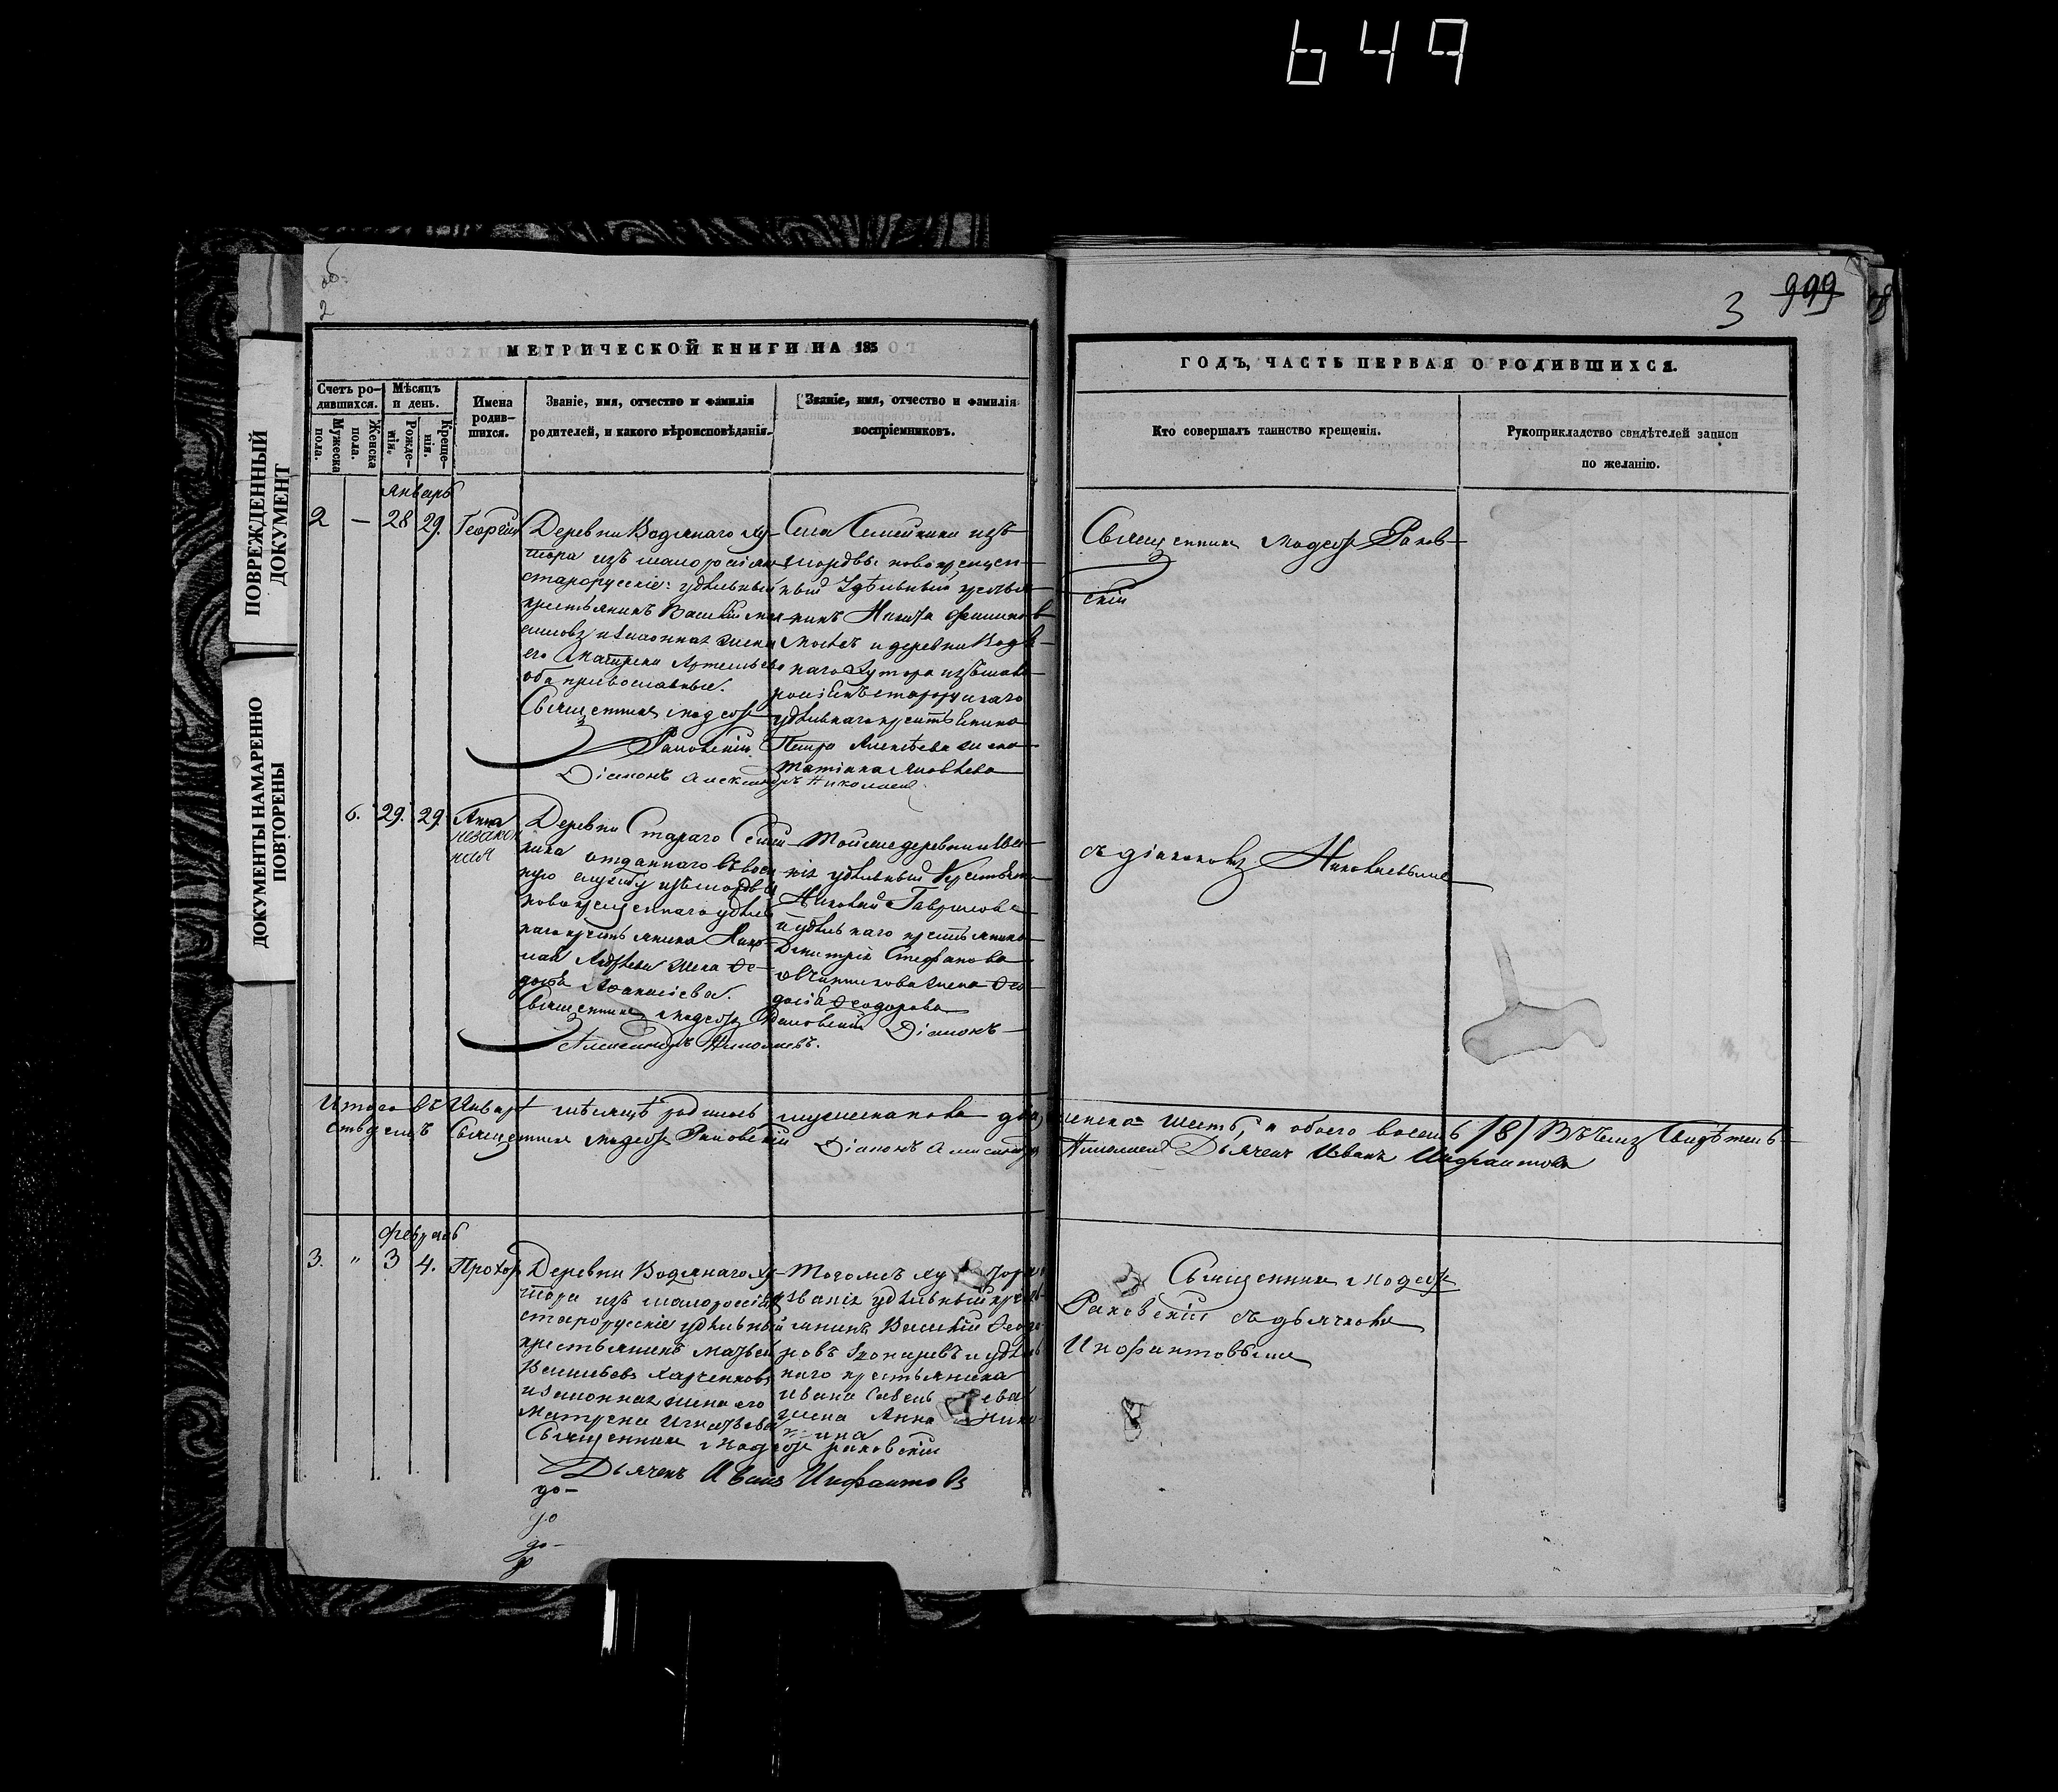 649
ПОВРЕЖДЕННЫЙ
ДОКУМЕНТ
ДОКУМЕНТЫ НАМАРЕННО
ПОВТОРЕНЫ
об.
2
3
999
МЕТРИЧЕСКОЙ КНИГИ НА 185
ГОДЪ, ЧАСТЬ ПЕРВАЯ О РОДИВШИХСЯ.
Счетъ ро-
дившихся.
Мужеска
пола.
Женска
пола.
Мѣсяцъ
и день.
Рожде-
нія.
Креще-
нія.
Имена
родив-
шихся.
Званіе, имя, отчество и фамилія
родителей, и какого вѣроисповѣданія.
Званіе, имя, отчество и фамилія
воспріемниковъ.
Кто совершалъ таинство крещенія.
Рукоприкладство свидѣтелей записи
по желанію.
Январь
2 — 28 29. Георгій
Деревни Водянаго Ху-
тора изъ малоросіянъ
старорусскіе: удѣльный
крестьянинъ Василій
и законная жена
его Матрена Артемьева
оба православные.
Священникъ Модестъ
Раковскій
Діаконъ Александръ Николаевъ
Села Семейкина изъ
мордвы новокрещен-
ный Удѣльный крестья-
нинъ Никита
и деревни Водя-
наго Хутора изъ мало-
росіянъ старорускаго
удѣльнаго крестьянина
Петра Алексѣева жена
Татіана Яковлева
Священникъ Модестъ Раков-
скій
6. 29. 29. Анна
незакон
ная
Деревни Стараго Семей-
кина отданнаго въ воен-
ную службу изъ мордвы
новокрещеннаго удѣль
наго крестьянина Нико-
лая Андреева жена Ѳе-
досья Аѳанасіева.
Священникъ Модестъ Раковскій Діаконъ
Александръ Николаевъ.
Тойже деревни и зва-
нія удѣльный Крестьян
Николай Гавриловъ
и удѣльнаго крестьянина
Димитрія Стефанова
Овчинникова жена Ѳео-
досія Ѳеодорова
съ діакономъ Николаевымъ
Итого въ Январѣ мѣсяцѣ родилось мужеска пола два, женска шесть, а обоего восемь /8/ Въ чемъ Свидѣтель-
ствуемъ Священникъ Модестъ Раковскій Діаконъ Александръ Николаевъ Дьячекъ Иванъ Инфантовъ
февраль
3. " 3 4. Прохор
Деревни Водянаго Ху-
тора изъ малоросс
старорусскіе удѣльный
крестьянинъ Матвей
Васильевъ Харченковъ
и законная жена его
Матрена Игнатьева
Священникъ Модестъ Раковскій
Дьячекъ Иванъ Инфантовъ
Тогожъ Хутора
званія удѣльный кресть-
янинъ Василій Ѳеодо-
ровъ и удѣль
наго крестьянина
Ивана Савельева
жена Анна Ники-
тина
Священникъ Модестъ
Раковскій съ дьячкомъ
Инфантовымъ
до-
до
до-
до